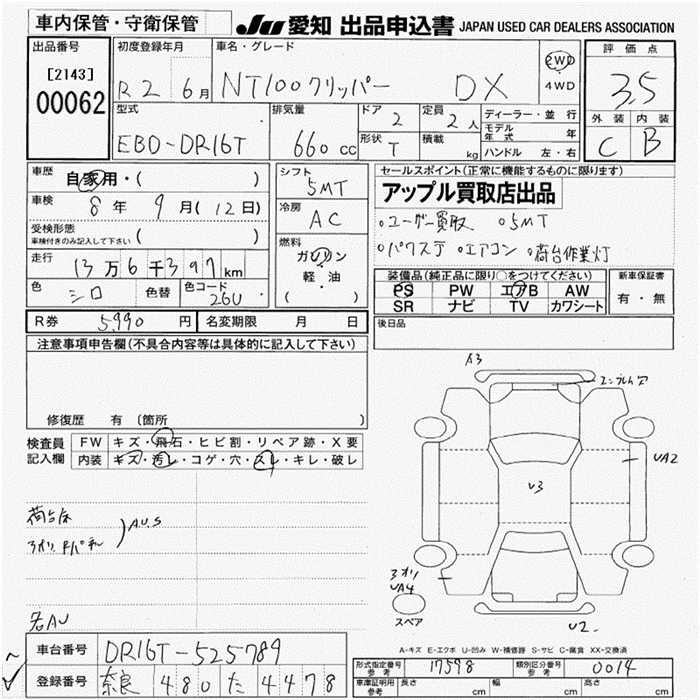 車内保管・守衛保管
JU 愛知 出品申込書 JAPAN USED CAR DEALERS ASSOCIATION
出品番号
[2143]
00062
初度登録年月
R2 6月
車名・グレード
NT100クリッパー DX
2WD
4WD
評価点
3.5
外装 内装
C B
型式
EBD-DR16T
排気量
660 cc
ドア
2
形状
T
定員
2人
積載
kg
ディーラー・並行
モデル年式 年
ハンドル 左・右
車歴
自家用・( )
車検
8年 9月(12日)
受検形態
車検付きのみ記入して下さい ( )
走行
13万6千397km
色
シロ
色替
色コード
26U
シフト
5MT
冷房
AC
燃料
ガソリン
軽・油
( )
セールスポイント(正常に機能するものに限ります)
アップル買取店出品
○ユーザー買取 ○5MT
○パワステ ○エアコン ○荷台作業灯
装備品(純正品に限り○をつけてください)
PS PW エアB AW
SR ナビ TV カワシート
新車保証書
有・無
R券 5,990円
名変期限 月 日
後日品
注意事項申告欄(不具合内容等は具体的に記入して下さい)
修復歴 有 〔箇所 〕
検査員記入欄
FW キズ・飛石・ヒビ割・リペア跡・X要
内装 キズ・汚レ・コゲ・穴・スレ・キレ・破レ
荷台床
3オリ
A.U.S
各AU
A3
エンブレム穴
UA2
U3
3オリ
UA4
スペア
U2
A-キズ E-エクボ U-凹み W-補修跡 S-サビ C-腐食 XX-交換済
車台番号 DR16T-525789
登録番号 奈良 480 た 4478
型式指定番号 参考 17598
類別区分番号 参考 0014
車庫証明用 参考 長さ cm 幅 cm 高さ cm